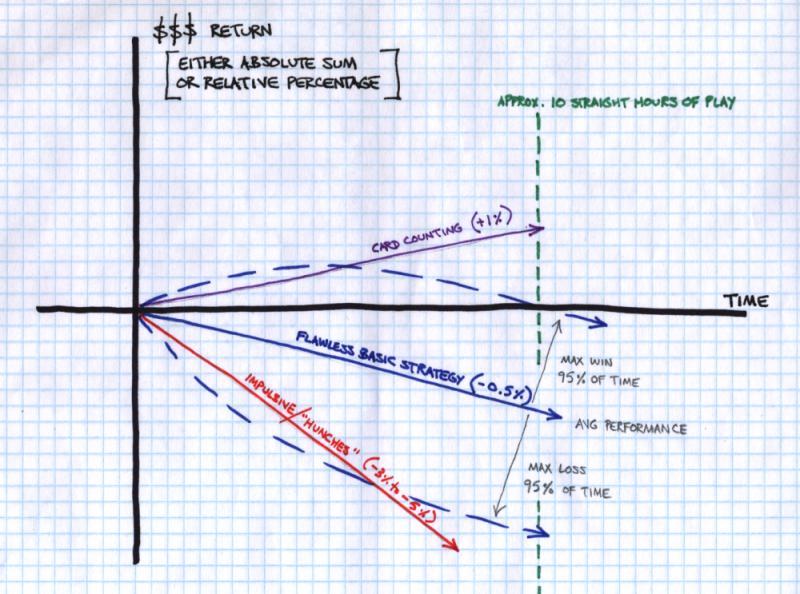 $$$ RETURN
[EITHER ABSOLUTE SUM
OR RELATIVE PERCENTAGE]
APPROX. 10 STRAIGHT HOURS OF PLAY
CARD COUNTING (+1%)
TIME
FLAWLESS BASIC STRATEGY (-0.5%)
MAX WIN
95% OF TIME
IMPULSIVE/"HUNCHES" (-3% to -5%)
AVG PERFORMANCE
MAX LOSS
95% OF TIME